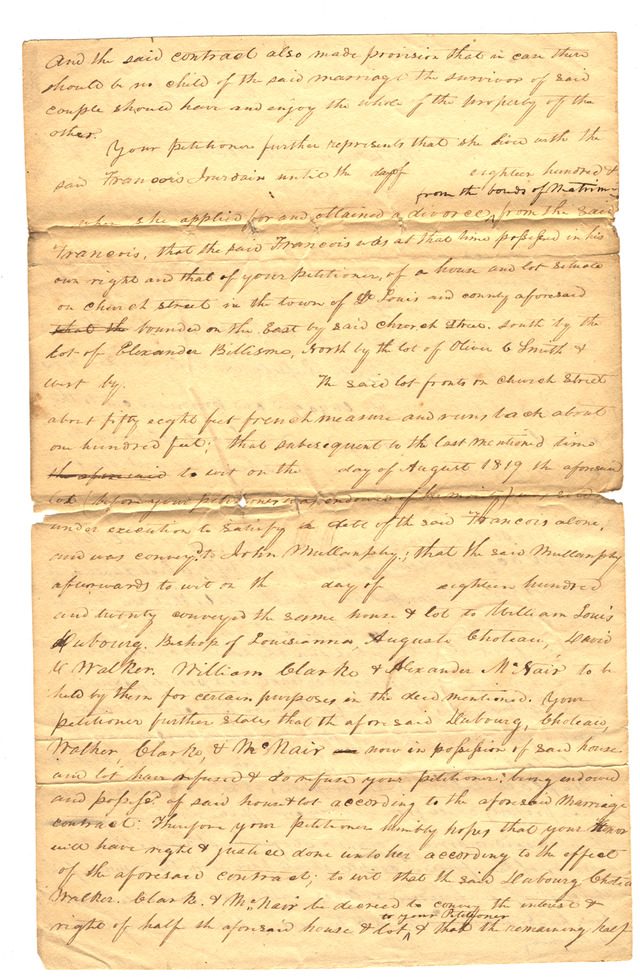 And the said contract also made provision that in case there
should be no child of the said marriage the survivor of said
couple should have and enjoy the whole of the property of the
other.
Your petitioner further represents that she live with the
said Francois Jourdain until the day of eighteen hundred &
from the bonds of Matrimo
when she applied for and obtained a divorce ^ from the said
Francois, that the said Francois was at that time possessed in his
own right and that of your petitioner, of a house and lot situate
on church street in the town of St Louis and county aforesaid
that the bounded on the East by said church Stree. South by the
lot of Elexander Billisme, North by the lot of Oliver C Smith &
west by. The said lot fronts on church Street
about fifty eight feet french measure and runs back about
one hundred feet; that subsequent to the last mentioned time
the aforesaid to wit on the day of August 1819 the aforesaid
lot (before your petitioner was endowed of her moity) was sold
under execution to satisfy a debt of the said Francois alone,
and was convey.d to John Mullanphy; that the said Mullanphy
afterwards to wit on th day of eighteen hundred
and twenty conveyed the same house & lot to William Louis
Dubourg. Bishop of Louisianna, Auguste Choteau, David
C Walker. William Clarke & Alexander Mc Nair to be
held by them for certain purposes in the deed mentioned. Your
petitioner further states that th afore said Dubourg, Choteau,
Walker, Clarke, & Mc Nair now in possession of said house
and lot have refused & do refuse your petitioner: being endowed
and possess.d of said house & lot according to the aforesaid Marriage
contract: Therefore your petitioner humbly hopes that your Honor
will have right & justice done unto her according to the effect
of the aforesaid contract; to wit that the said Dubourg Chotea
Walker. Clark. & Mc Nair be decreed to convey the interest &
to your Petitioner
right of half the aforesaid house & lot ^ & that the remaining half